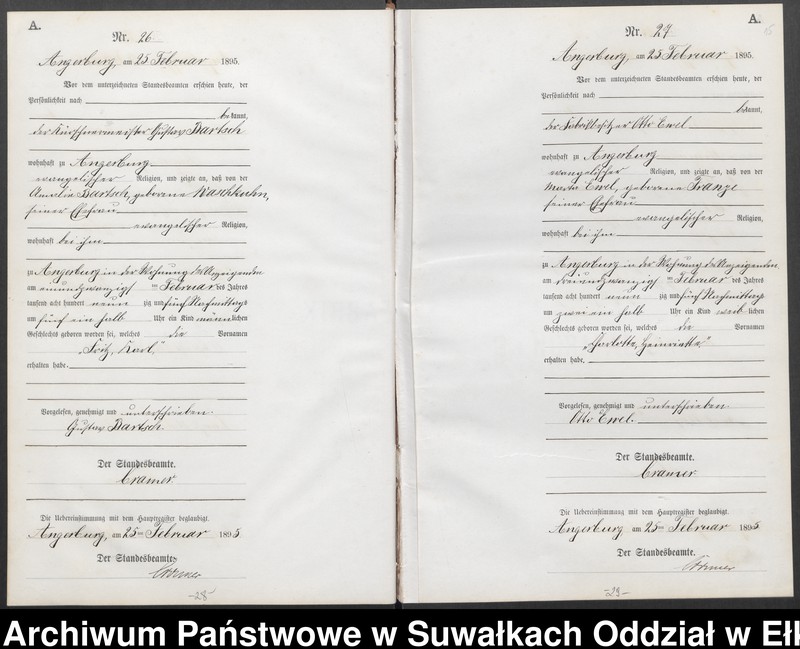 A.
Nr. 26
Angerburg, am 25 Februar 1895.
Vor dem unterzeichneten Standesbeamten erschien heute, der
Persönlichkeit nach
bekannt,
der Kürschnermeister Gustav Bartsch
wohnhaft zu Angerburg
evangelischer Religion, und zeigte an, daß von der
Amalie Bartsch, geborene
seiner Ehefrau
evangelischer Religion,
wohnhaft bei ihm
zu Angerburg in der Wohnung des Anzeigenden
am neunundzwanzigst Februar des Jahres
tausend acht hundert neun zig und fünf Nachmittags
um fünf ein halb Uhr ein Kind männlichen
Geschlechts geboren worden sei, welches die Vornamen
„Fritz, Karl“
erhalten habe.
Vorgelesen, genehmigt und unterschrieben.
Gustav Bartsch.
Der Standesbeamte.
Cramer.
Die Uebereinstimmung mit dem Hauptregister beglaubigt.
Angerburg, am 25ten Februar 1895
Der Standesbeamte.
Cramer
-28-
A.
Nr. 27
Angerburg, am 25 Februar 1895.
Vor dem unterzeichneten Standesbeamten erschien heute, der
Persönlichkeit nach
bekannt,
der Fabrikbesitzer Otto Ewel
wohnhaft zu Angerburg
evangelischer Religion, und zeigte an, daß von der
Maria Ewel, geborene Franze
seiner Ehefrau
evangelischer Religion,
wohnhaft bei ihm
zu Angerburg in der Wohnung des Anzeigenden
am dreiundzwanzigst Februar des Jahres
tausend acht hundert neun zig und fünf Nachmittags
um zwei ein halb Uhr ein Kind weiblichen
Geschlechts geboren worden sei, welches die Vornamen
„Charlotte, Heinriette“
erhalten habe.
Vorgelesen, genehmigt und unterschrieben.
Otto Ewel.
Der Standesbeamte.
Cramer.
Die Uebereinstimmung mit dem Hauptregister beglaubigt.
Angerburg am 25ten Februar 1895
Der Standesbeamte.
Cramer
-29-
Archiwum Państwowe w Suwałkach Oddział w Eł